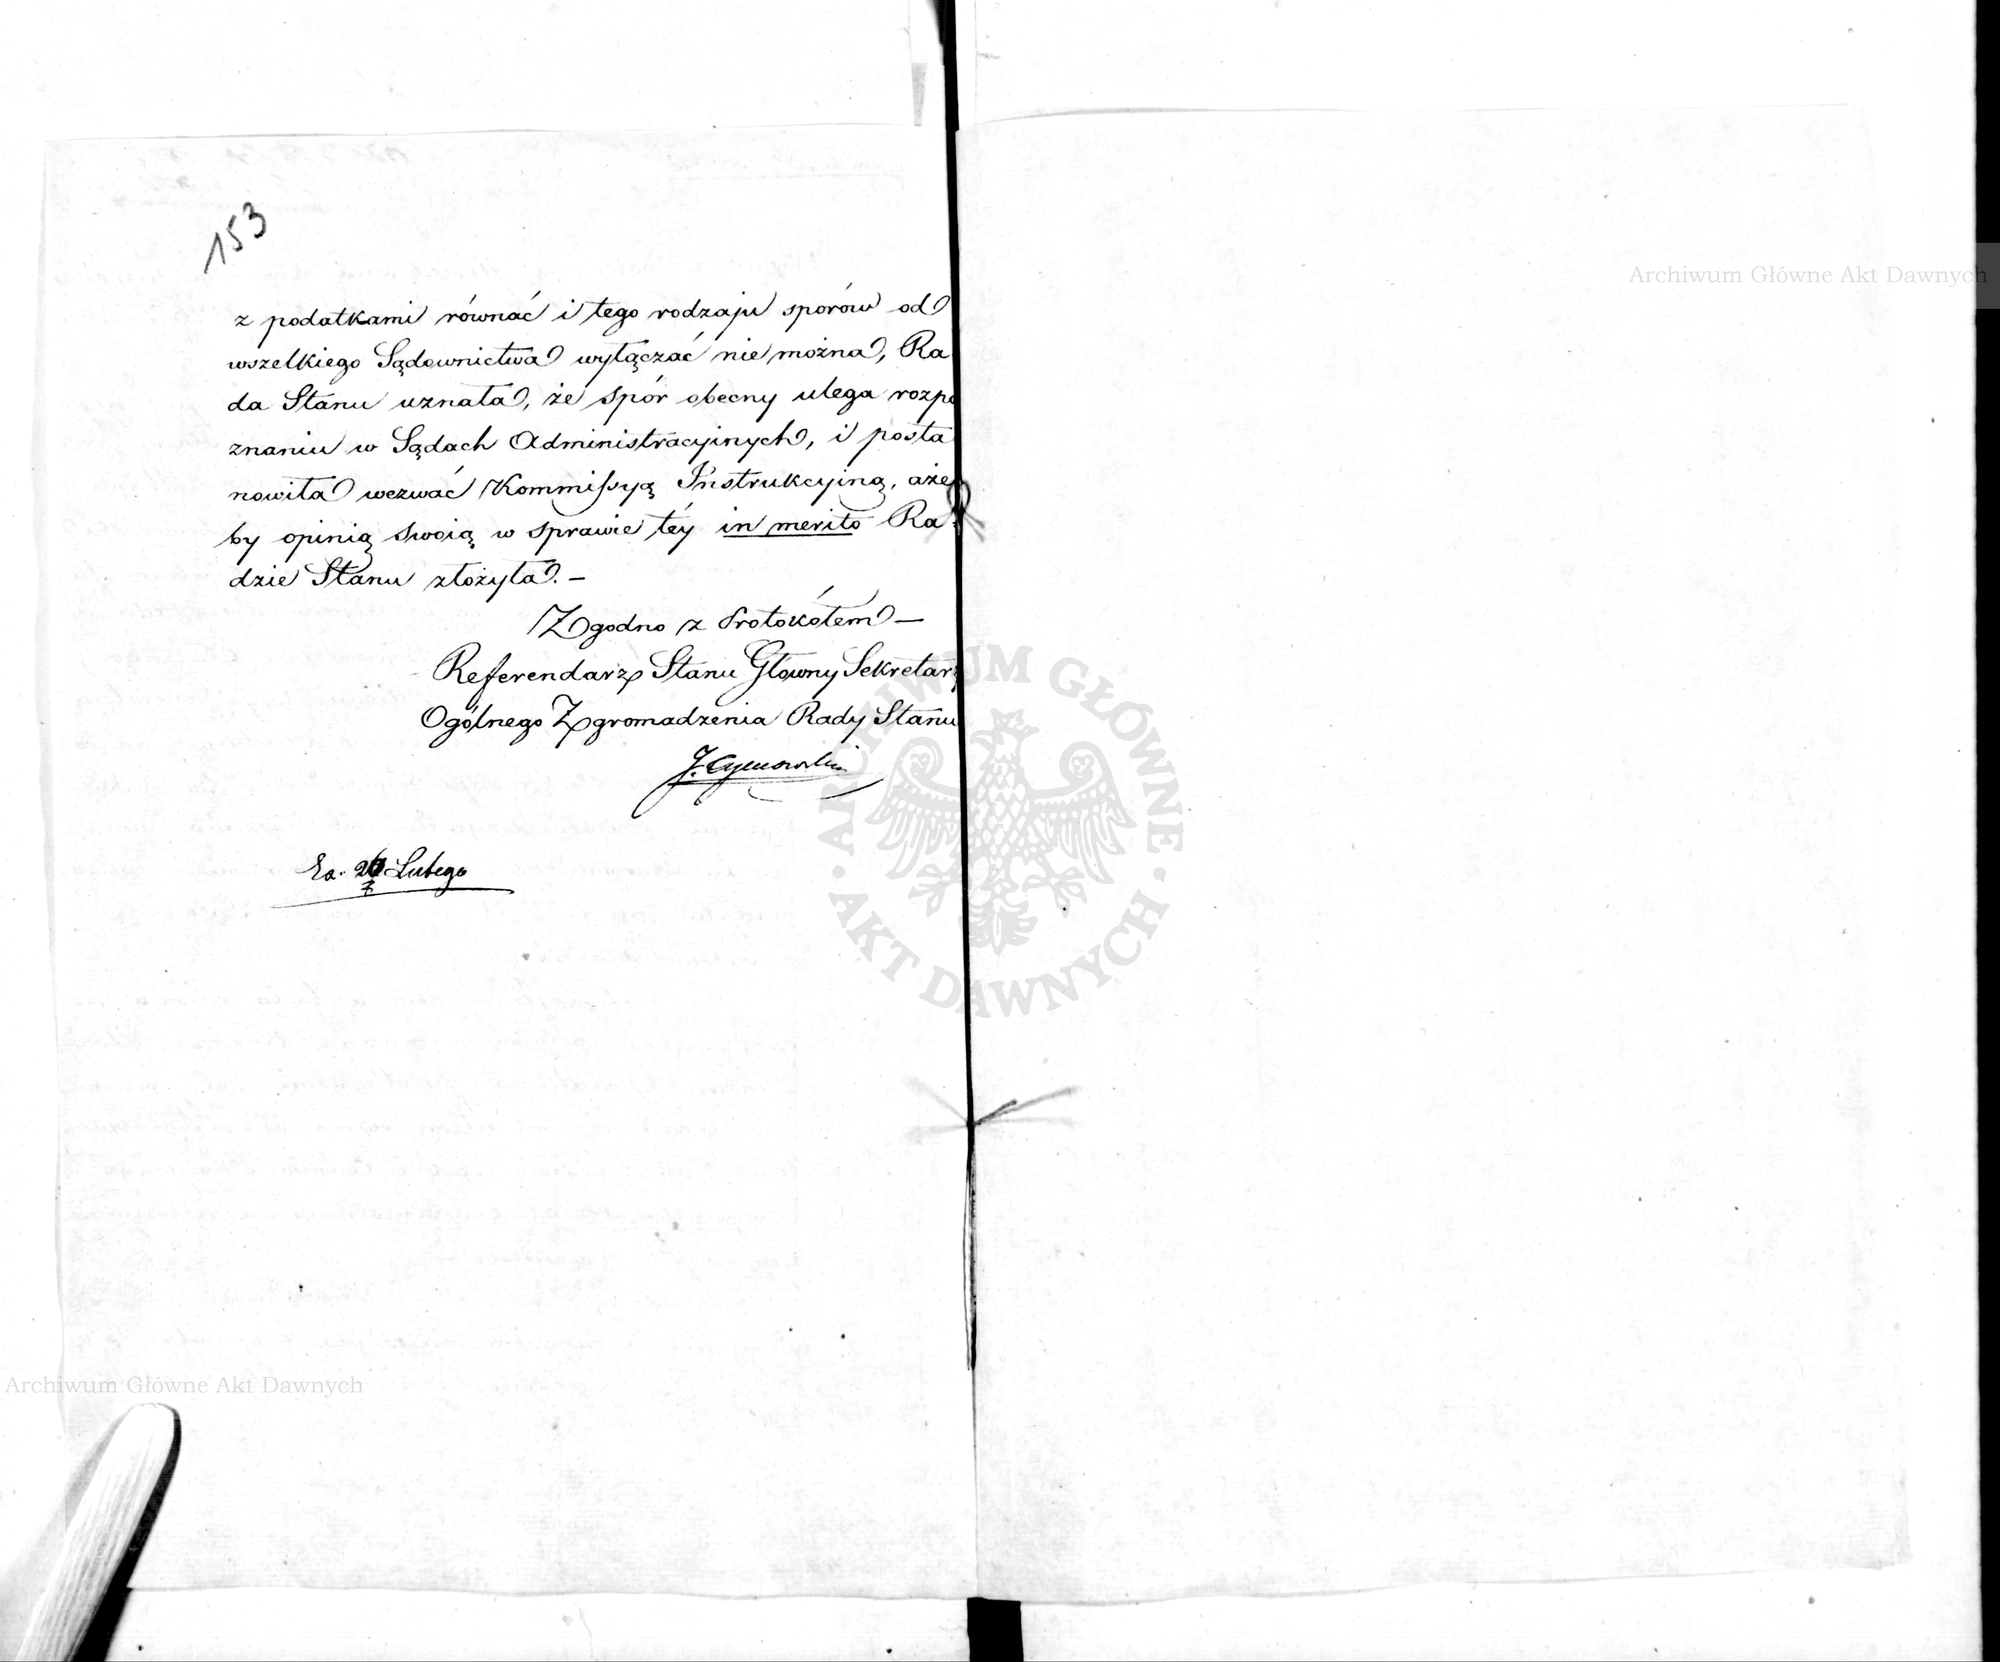 153
z podatkami równać i tego rodzaju sporów od
wszelkiego Sądownictwa wyłączać nie można, Ra
da Stanu uznała, że spór obecny ulega rozpo
znaniu w Sądach Administracyjnych, i posta
nowiła wezwać Kommissyą Instrukcyiną, aże
by opinią swoią w sprawie téy in merito Ra-
dzie Stanu złożyła. –
Zgodno z Protokółem –
Referendarz Stanu Główny Sekretarz
Ogólnego Zgromadzenia Rady Stanu
J.
Lutego
Archiwum Główne Akt Dawnych
Archiwum Główne Akt Dawnych
ARCHIWUM GŁÓWNE
AKT DAWNYCH